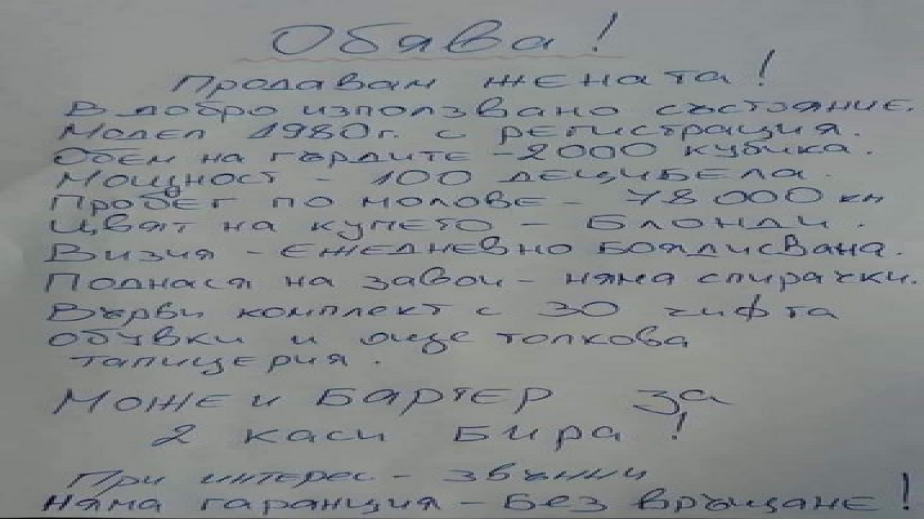 Обява!
Продавам жената!
В добро използвано състояние.
Модел 1980г. с регистрация.
Обем на гърдите - 2000 кубика.
Мощност - 100 децибела.
Пробег по молове - 78000 км
Цвят на купето - Блонди.
Визия - ежедневно боядисвана.
Поднася на завои - няма спирачки.
Върви комплект с 30 чифта
обувки и още толкова
тапицерия.
Може и бартер за
2 каси бира!
При интерес - звънни
няма гаранция - Без връщане!